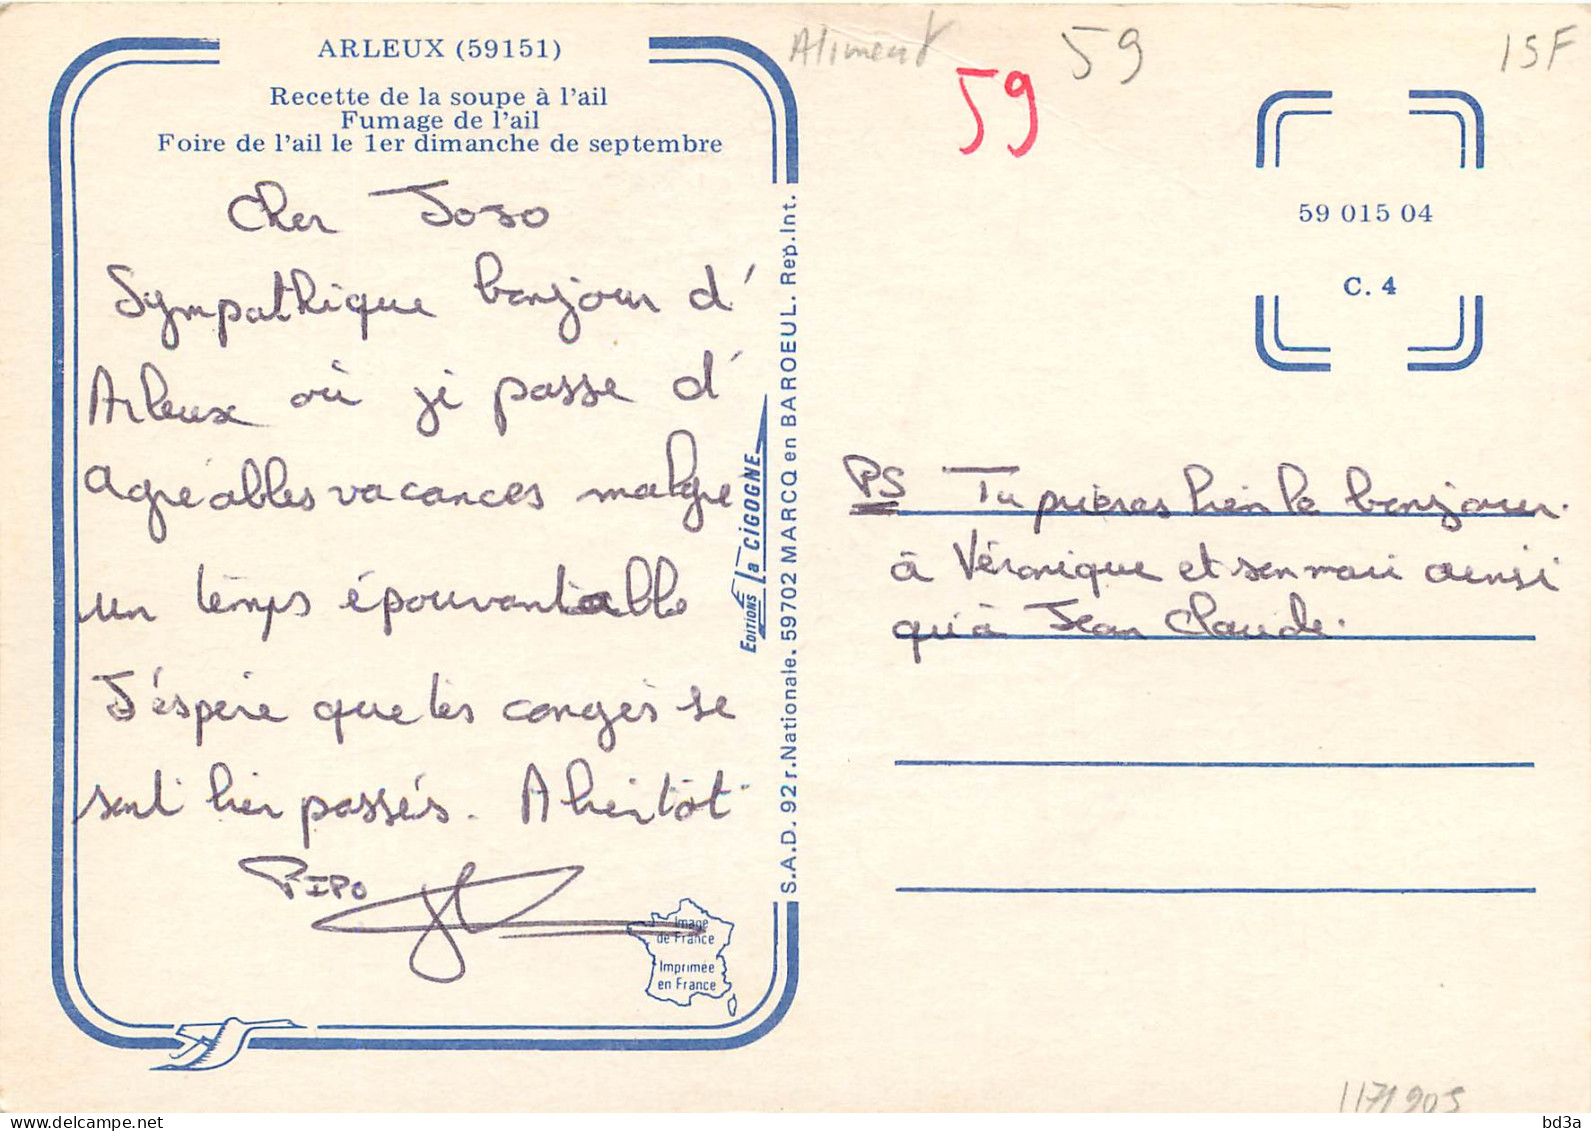 ARLEUX (59151)
Recette de la soupe à l'ail
Fumage de l'ail
Foire de l'ail le 1er dimanche de septembre
Cher Jojo
Sympathique bonjour d'
Arleux où je passe d'
agréables vacances malgré
un temps épouvantable
J'éspère que les congés se
sont bien passés. A bientôt.
PIPO
Image
de France
Imprimée
en France
EDITIONS La CIGOGNE
S.A.D. 92 r. Nationale. 59702 MARCQ en BAROEUL. Rep. Int.
Aliment
59
59
15F
59 015 04
C. 4
PS Tu bien le bonjour
à Véronique et son mari ainsi
qu'à Jean Claude.
1171905
delcampe.net
bd3a